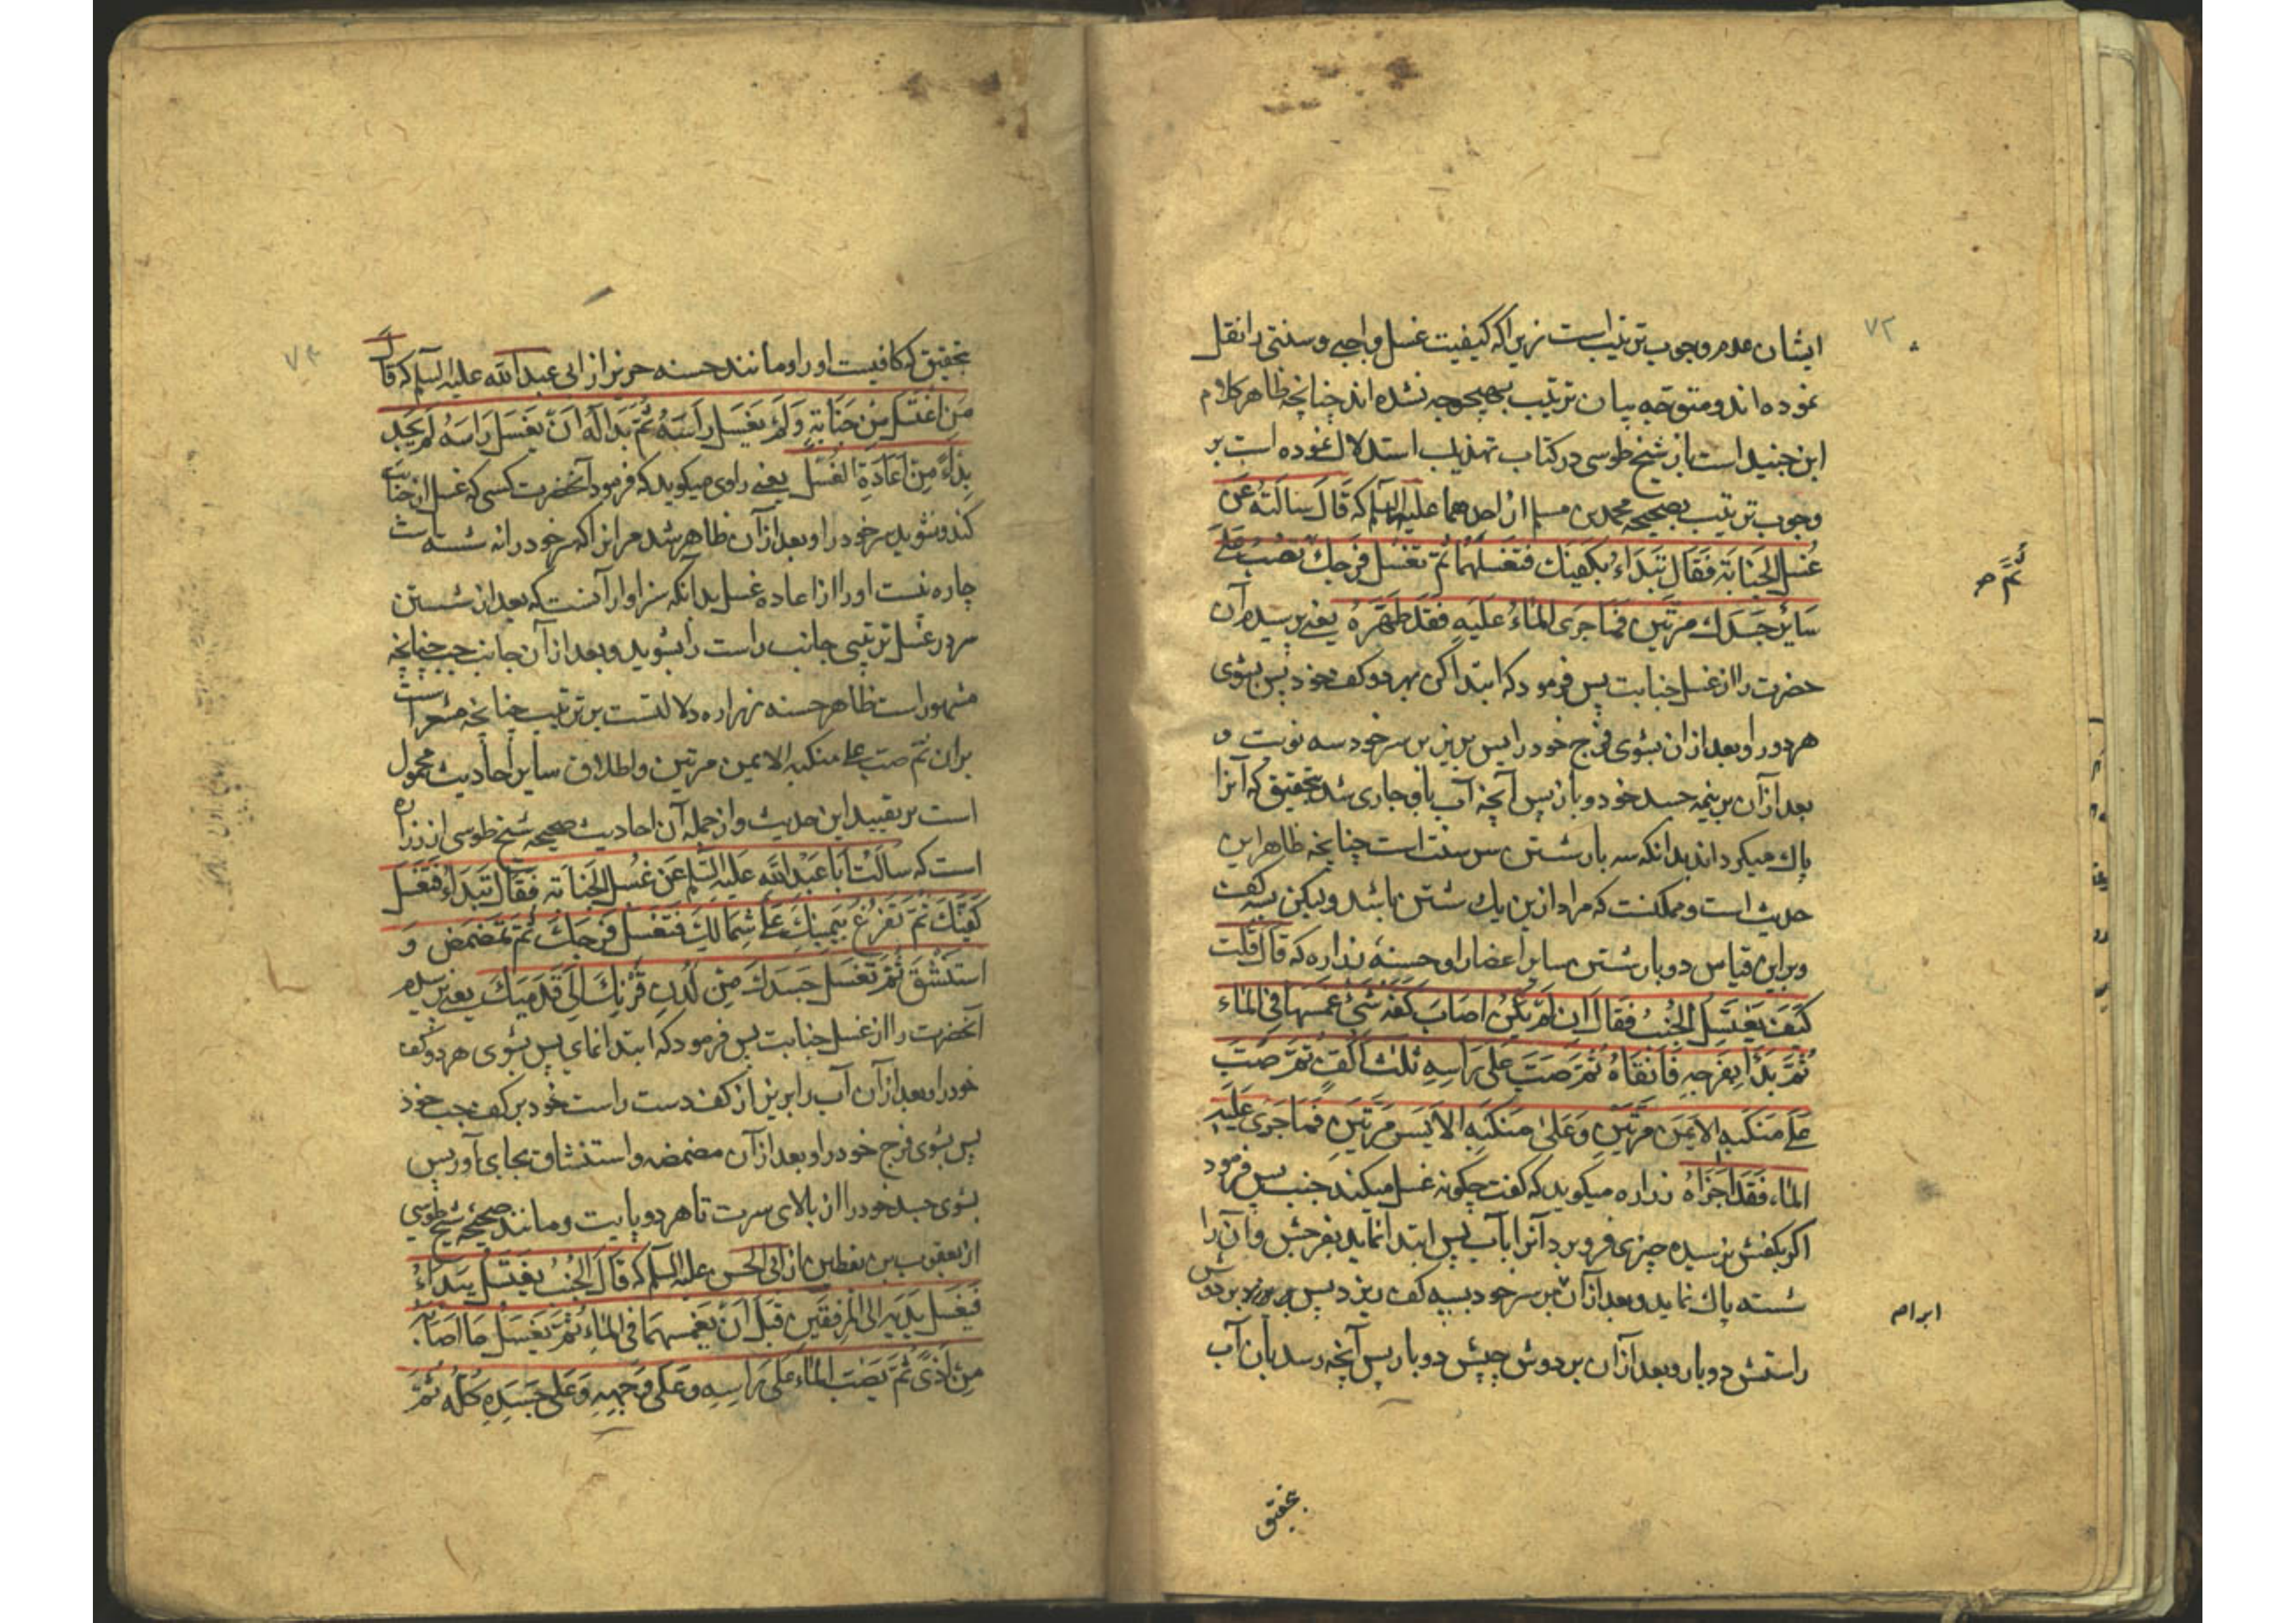 ۷۲
ایشان عدم وجوب ترتیب است زیرا که کیفیت غسل واجبی و سنتی را نقل
نموده اند و متوجه بیان ترتیب بهیچوجه نشده اند چنانچه ظاهر کلام
ابن جنید است باز شیخ طوسی در کتاب تهذیب استدلال نموده است بر
وجوب ترتیب بصحیحه محمد بن مسلم از احدهما علیه السلم که قَالَ سَاَلتُهُ عَن
غُسلِ الجَنَابَةِ فَقَالَ تَبَدَاءُ بِکَفَّیكَ فَتَغسِلُهُمَا ثُمَّ تَغسُل فَرجَكَ تَصُبُّ عَلَی
ثُمَّ صح
سَایِرِ جَسَدِكَ مَرَّتَینِ فَمَا جَرَی المَاءُ عَلَیهِ فَقَد طَهَّرَهُ یعنی پرسیدم آن
حضرت را از غسل جنابت پس فرمود که ابتدا کن بهر دو کف خود پس بشوی
هر دو را و بعد از ان بشوی فرج خود را پس بریز بر سر خود سه نوبت و
بعد از آن بر بنیه جسد خود دو بار پس آنچه آب باو جاری شد بتحقیق که آنرا
پاك میکرداند بدانکه سه بار شستن سر سنت است چنانچه ظاهر این
حدیث است و ممکنست که مراد ازین یك شستن باشد ولیکن بسه کف
و براین قیاس دو بار شستن سایر اعضا را و حسنهٔ زراره که قَالَ قُلتُ
کَیفَ یَغتَسِلُ الجُنُبُ فَقَالَ اِن لَم یَکُن اَصَابَ کَفَّهُ شَئٌ غَمَسَهَا فِی المَاءِ
ثُمَّ بَدَاَ بِفَرجِهِ فَاَنقَاهُ ثُمَّ صَبَّ عَلی رَاسِهِ ثَلثَ اَکُفٍّ ثُمَّ صَبَّ
عَلَی مَنکَبِهِ الاَیمَنِ مَرَّتَینِ وَعَلی مَنکَبِهِ الاَیسَرِ مَرَّتَینِ فَمَا جَرَی عَلَیهِ
المَاء فَقَد اَجزَاهُ زراره میکوید که کفت چکونه غسل میکند جنب پس فرمود
اکر بکفش نرسیده چیزی فرو برد آنرا بآب پس ابتدا نماید بفرجش و آن را
شسته پاك نماید و بعد از آن بر سر خود بسه کف ریزد پس بریزد بر دوش
راستش دو بار و بعد از آن بر دوش چپش دو بار پس آنچه رسد بآن آب
بتحقیق
بتحقیق که کافیست او را و مانند حسنه حریز از ابی عبد الله علیه السلم که قَالَ
مَنِ اغتَسَلَ مِن جَنَابَةٍ وَلَم یَغسِل رَاسَهُ ثُمَّ بَدَا لَهُ اَن یَغسِلَ رَاسَهُ لَم یَجِد
بُدّاً مِن اِعَادَةِ الغُسلِ یعنی راوی میکوید که فرمود آنحضرت کسی که غسل از جنابت
کند و نشوید سر خود را و بعد از آن ظاهر شد مر انرا که سر خود را نه شسته است
چاره نیست او را از اعاده غسل بدانکه سزاوار آنست که بعد از شستن
سر در غسل ترتیبی جانب راست را بشوید و بعد از آن جانب چپ چنانچه
مشهور است ظاهر حسنه زراره دلالتست بر ترتیب چنانچه مشعر است
بران ثم صب علی منکبه الایمن مرتین و اطلاق سایر احادیث محمول
است بر تقیید این حدیث و از جمله آن احادیث صحیحه شیخ طوسی از زراره
است که سَاَلتُ اَبَا عَبدِ اللهِ عَلَیهِ السَّلم عَن غُسلِ الجَنَابَةِ فَقَالَ تَبَدَاءُ فَتَغسِلُ
کَفَّیكَ ثُمَّ تَفرُغُ بِیَمِینِكَ عَلَی شِمَالِكَ فَتَغسِلُ فَرجَكَ ثُمَّ تَمَضمَض وَ
استَنشِق ثُمَّ تَغسِلُ جَسَدَكَ مِن لَدُن قَرنِكَ اِلَی قَدَمَیكَ یعنی پرسیدم
آنحضرت را از غسل جنابت پس فرمود که ابتدا نمای پس بشوی هر دو کف
خود را و بعد از آن آب را بریز از کف دست راست خود بر کف چپ خود
پس بشوی فرج خود را و بعد از آن مضمضه و استنشاق بجای آور پس
بشوی جسد خود را از بالای سرت تا هر دو پایت و مانند صحیحه شیخ طوسی
از یعقوب بن یقطین از ابی الحسن علیه السلم که قَالَ الجُنُبُ یَغتَسِلُ یَبدَاءُ
فَیَغسِلُ یَدَیهِ اِلی المِرفَقَینِ قَبلَ اَن یَغمِسَهُمَا فِی المَاءِ ثُمَّ یَغسِلُ مَا اَصَابَهُ
مِن اَذیً ثُمَّ یَصُبُّ المَاءَ عَلَی رَاسِهِ وَعَلَی وَجهِهِ وَعَلَی جَسَدِهِ کُلِّهِ ثُمَّ